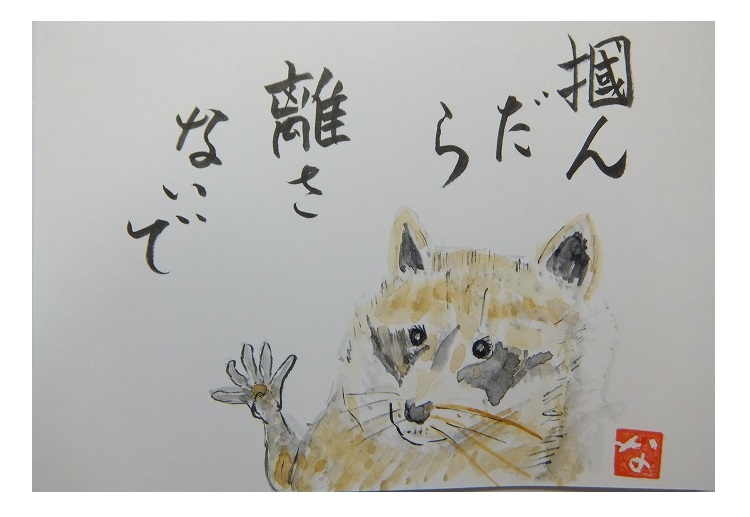 掴んだら
離さ
ないで
な